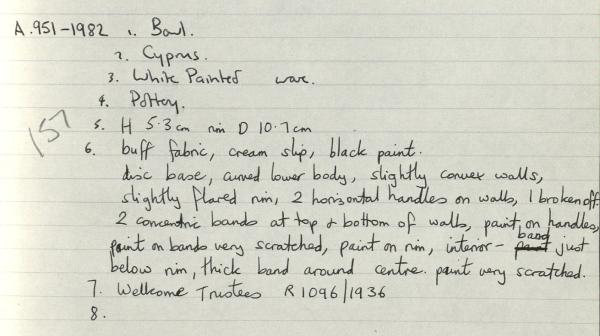 A.951-1982 1. Bowl.
2. Cyprus.
3. White Painted ware.
4. Pottery.
157
5. H 5.3cm rim D 10.7cm
6. buff fabric, cream slip, black paint.
disc base, curved lower body, slightly convex walls,
slightly flared rim, 2 horizontal handles on walls, 1 broken off.
2 concentric bands at top & bottom of walls, paint on handles,
paint on bands very scratched, paint on rim, interior - band paint just
below rim, thick band around centre. paint very scratched.
7. Wellcome Trustees R1096/1936
8.